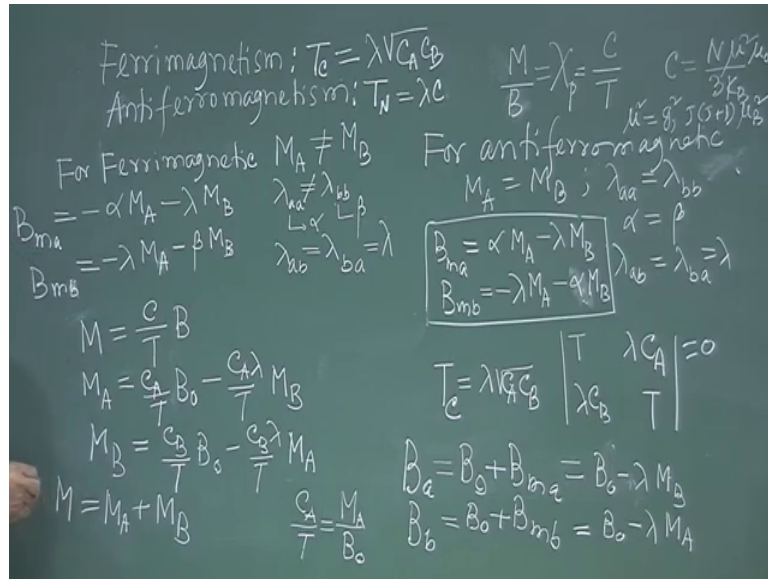 Ferrimagnetism: T_C = λ√C_A C_B
Antiferromagnetism: T_N = λC
M/B = χ_p = C/T
C = Nμ²μ₀/3k_B
μ² = g² J(J+1) μ_B²
For Ferrimagnetic M_A ≠ M_B
B_ma = -αM_A - λM_B
B_mb = -λM_A - βM_B
λ_aa ≠ λ_bb
↳α ↳β
λ_ab = λ_ba = λ
For antiferromagnetic
M_A = M_B ; λ_aa = λ_bb
α = β
B_ma = αM_A - λM_B
B_mb = -λM_A - αM_B
λ_ab = λ_ba = λ
M = C/T B
M_A = C_A/T B₀ - C_Aλ/T M_B
M_B = C_B/T B₀ - C_Bλ/T M_A
M = M_A + M_B
C_A/T = M_A/B₀
T_C = λ√C_A C_B
|T λC_A| = 0
|λC_B T|
B_a = B₀ + B_ma = B₀ - λM_B
B_b = B₀ + B_mb = B₀ - λM_A